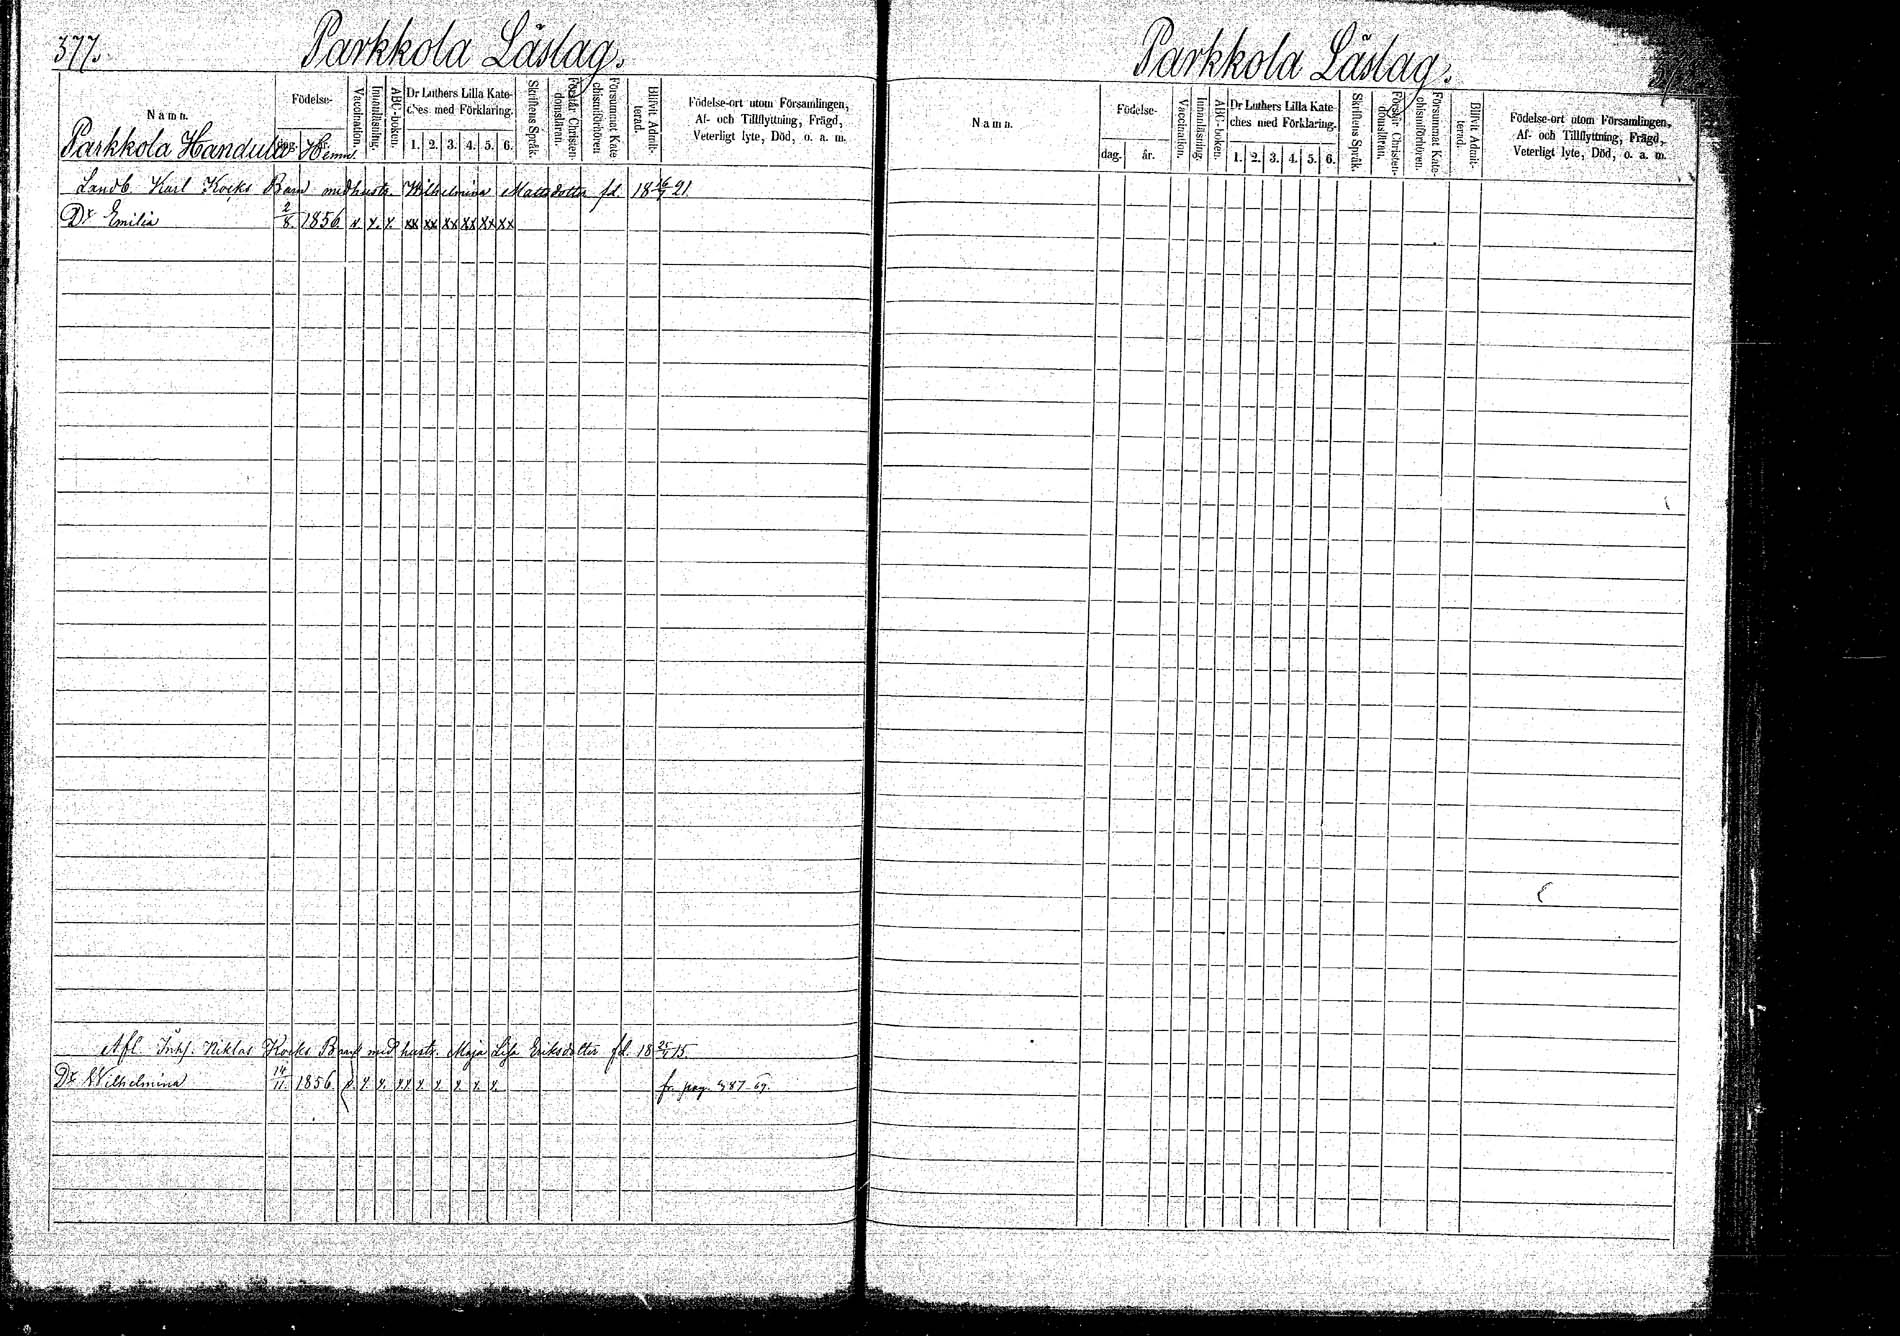 377.
Parkkola Läslag.
Namn.
Födelse-
dag.
år.
Vaccination.
Innanläsning.
ABC-boken.
Dr Luthers Lilla Kate-
ches med Förklaring.
1. 2. 3. 4. 5. 6.
Skriftens Språk.
Förstår Christen-
domsläran.
Försummat Kate-
chismiförhören
Blifvit Admit-
terad.
Födelse-ort utom Församlingen,
Af- och Tillflyttning, Frägd,
Veterligt lyte, Död, o. a. m.
Parkkola Handula Hemn.
Landb. Karl Kocks Barn med hustr. Wilhelmina Mattsdotter fd. 18 26/7 21.
Dr Emilia 2/8. 1856. x. x. x. xx xx xx xx xx xx
Afl. Inh. Niklas Kocks Barn med hustr. Maja Lisa Eriksdotter fd. 18 25/1 15.
Dr Wilhelmina 14/11. 1856. x. x. x. xx x x x x x. fr. pag. 387-69.
Parkkola Läslag.
Namn.
Födelse-
dag. år.
Vaccination.
Innanläsning.
ABC-boken.
Dr Luthers Lilla Kate-
ches med Förklaring.
1. 2. 3. 4. 5. 6.
Skriftens Språk.
Förstår Christen-
domsläran.
Försummat Kate-
chismiförhören.
Blifvit Admit-
terad.
Födelse-ort utom Församlingen,
Af- och Tillflyttning, Frägd,
Veterligt lyte, Död, o. a. m.